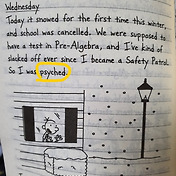 Wednesday
Today it snowed for the first time this winter,
and school was cancelled. We were supposed to
have a test in Pre-Algebra, and I've kind of
slacked off ever since I became a Safety Patrol.
So I was psyched.